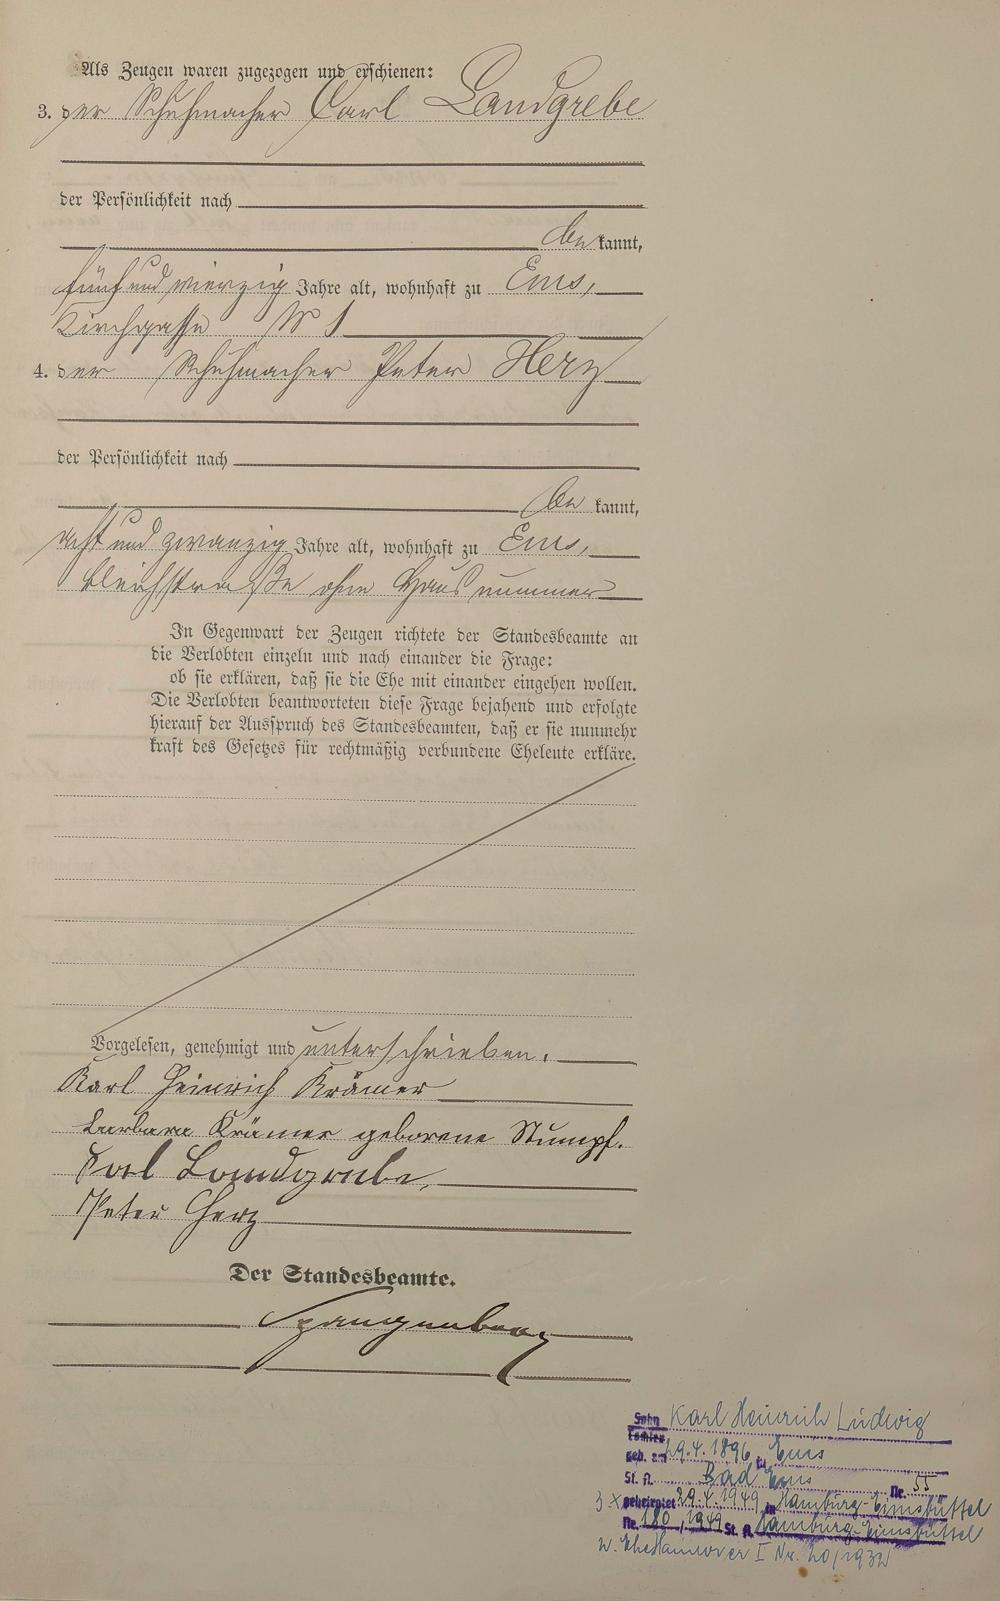 Als Zeugen waren zugezogen und erschienen:
3. der Schuhmacher Carl Landgrebe
der Persönlichkeit nach
be kannt,
fünf und vierzig Jahre alt, wohnhaft zu Ems,
Kirchgasse № 1
4. der Schuhmacher Peter Herz
der Persönlichkeit nach
be kannt,
acht und zwanzig Jahre alt, wohnhaft zu Ems,
Bleichstraße ohne Hausnummer
In Gegenwart der Zeugen richtete der Standesbeamte an
die Verlobten einzeln und nach einander die Frage:
ob sie erklären, daß sie die Ehe mit einander eingehen wollen.
Die Verlobten beantworteten diese Frage bejahend und erfolgte
hierauf der Ausspruch des Standesbeamten, daß er sie nunmehr
kraft des Gesetzes für rechtmäßig verbundene Eheleute erkläre.
Vorgelesen, genehmigt und unterschrieben.
Karl Heinrich Krämer
Barbara Krämer geborene Stumpf.
Landgrebe,
Peter Herz
Der Standesbeamte.
Spangenberg
Sohn Karl Heinrich Ludwig
Tochter
geb. am 29.4.1896 zu Ems
St. A. Bad Ems Nr. 55
3 x geheiratet 29.4.1949 in Hamburg-Eimsbüttel
Nr. 180, 1949 St. A. Hamburg-Eimsbüttel
2. Ehe Hannover I Nr. 20/1932